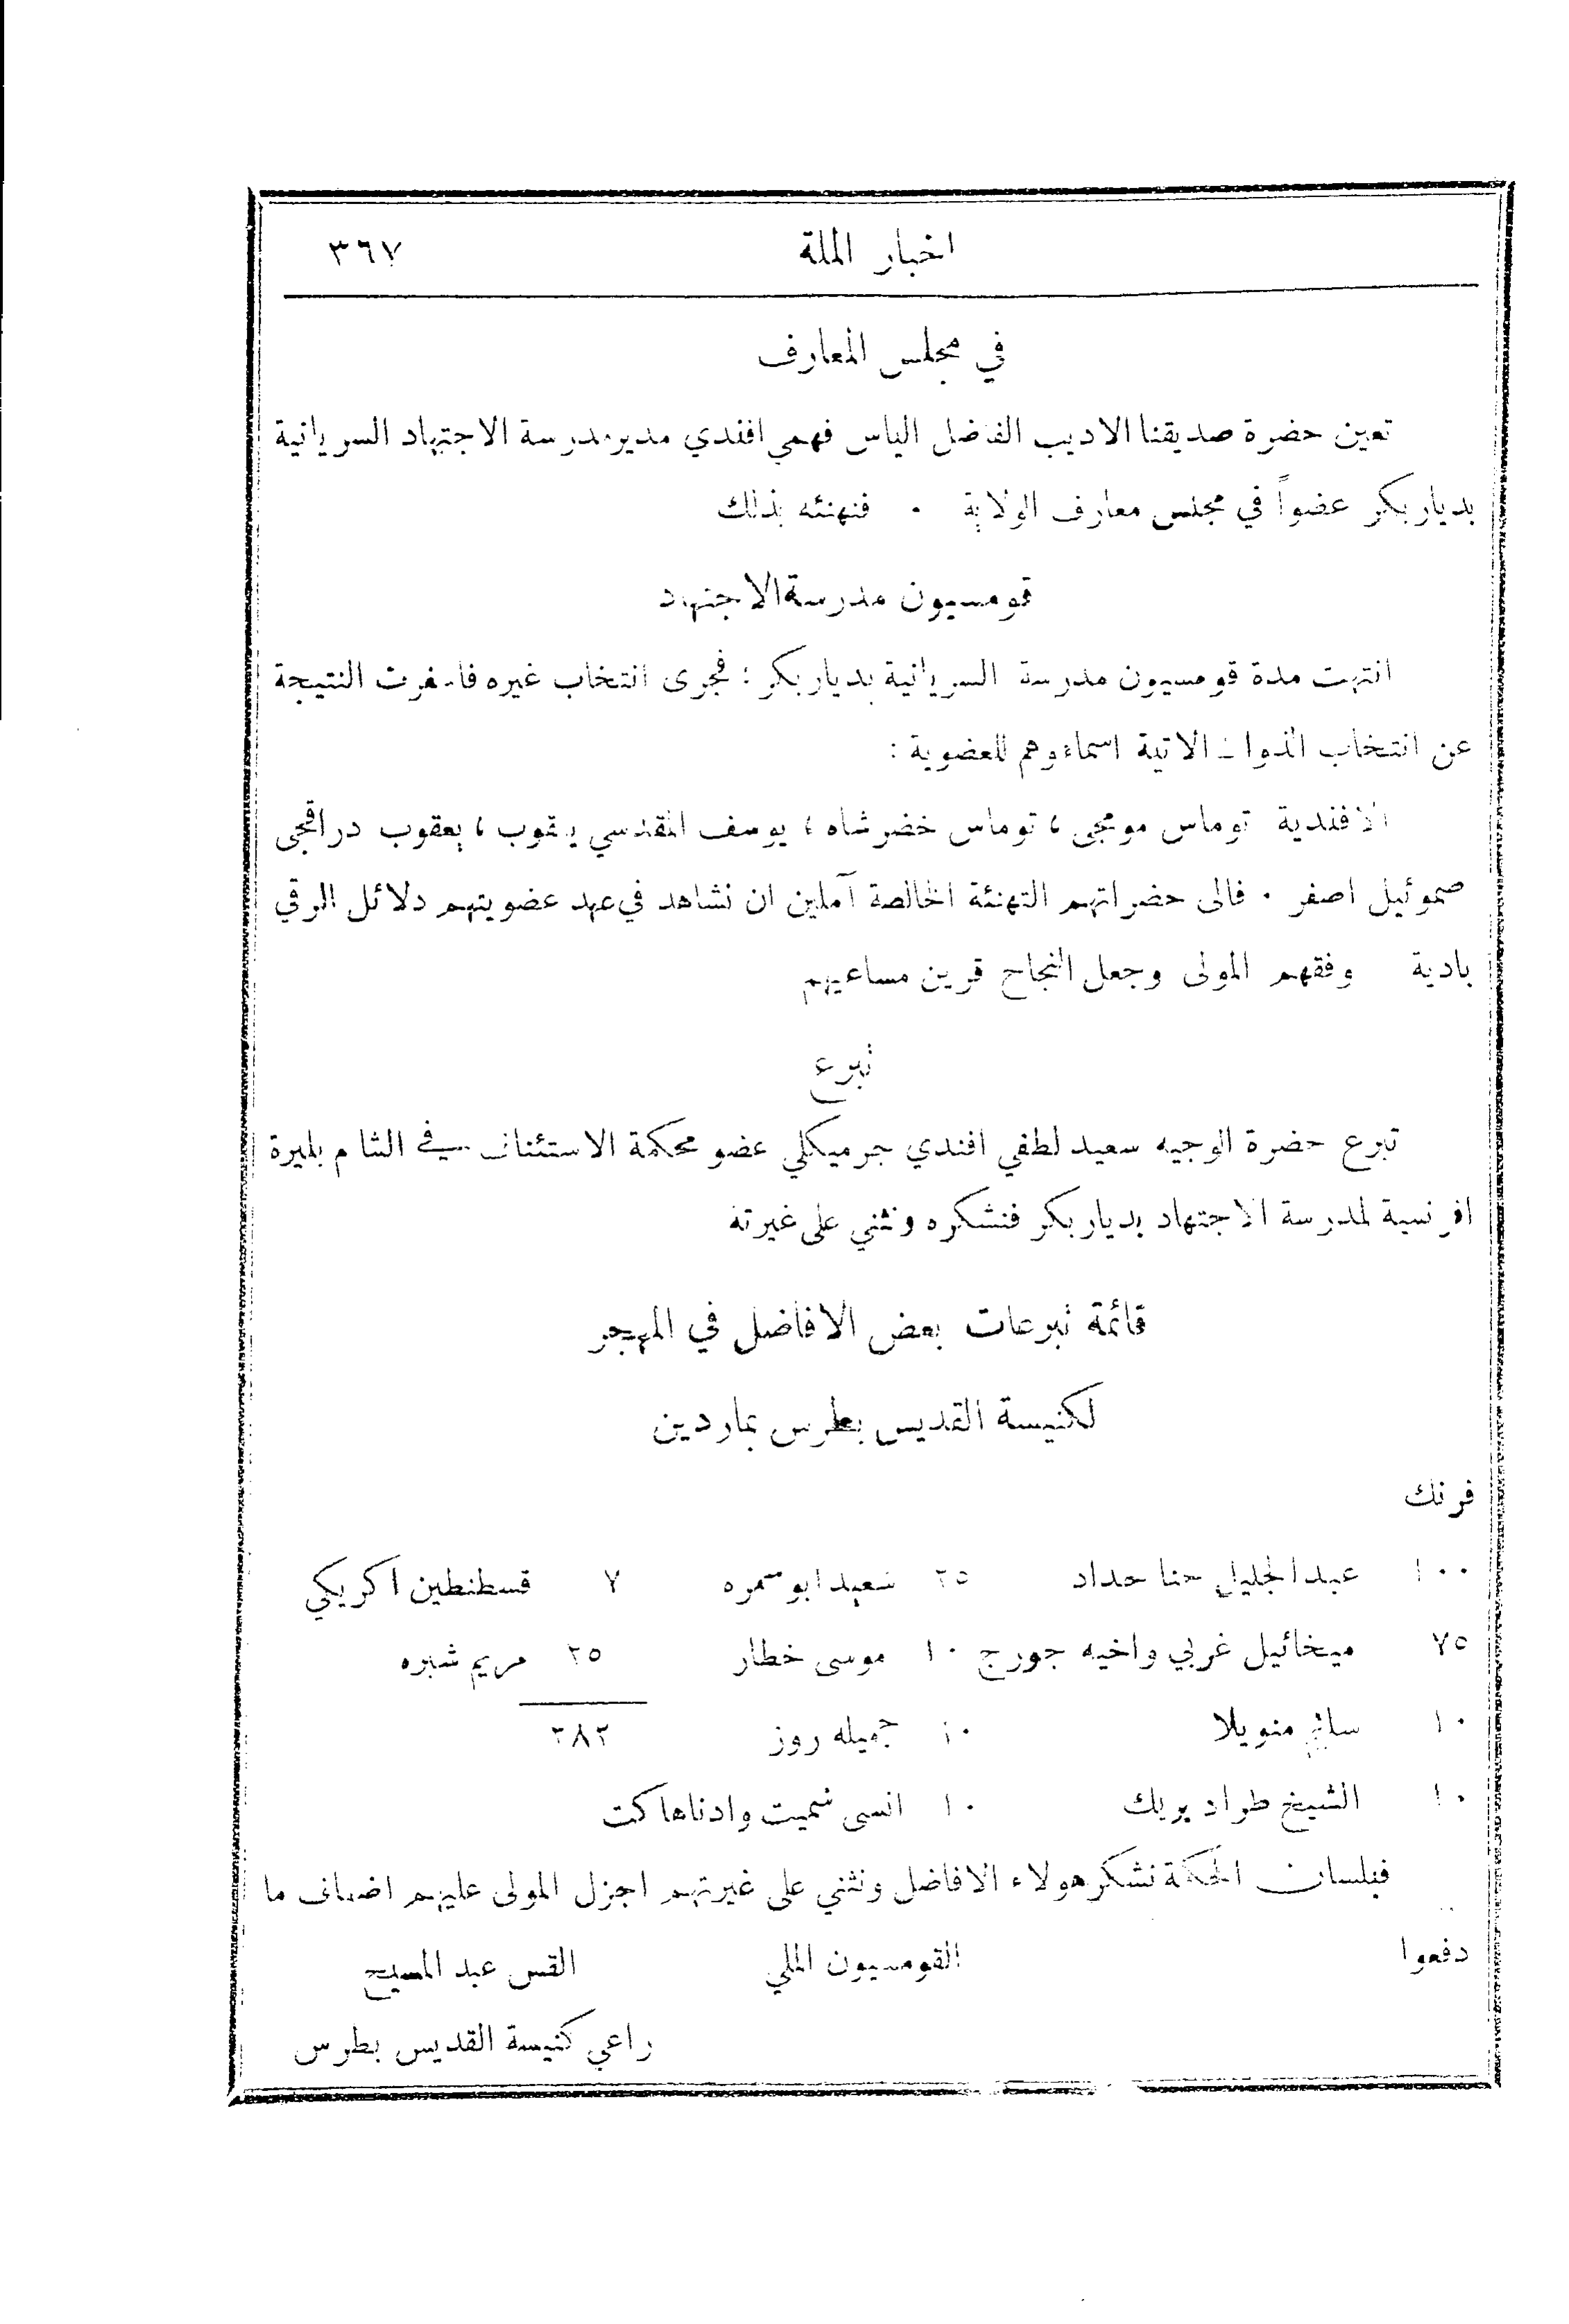 اخبار الملة ٣٦٧
في مجلس المعارف
تعين حضرة صديقنا الاديب الفاضل الياس فهمي افندي مدير مدرسة الاجتهاد السريانية
بديار بكر عضواً في مجلس معارف الولاية . فنهنئه بذلك
قومسيون مدرسة الاجتهاد
انتهت مدة قومسيون مدرسة السريانية بديار بكر : فجرى انتخاب غيره فاسفرت النتيجة
عن انتخاب الذوات الاتية اسماءوهم للعضوية :
الافندية توماس مومجى ، توماس خضرشاه ، يوسف المقدسي يعقوب ، يعقوب دراقجى
صموئيل اصفر . فالى حضراتهم التهنئة الخالصة آملين ان نشاهد في عهد عضويتهم دلائل الرقي
بادية وفقهم المولى وجعل النجاح قرين مساعيهم
تبرع
تبرع حضرة الوجيه سعيد لطفي افندي جرميكلي عضو محكمة الاستئناف في الشام بليرة
افرنسية لمدرسة الاجتهاد بديار بكر فنشكره ونثني على غيرته
قائمة تبرعات بعض الافاضل في المهجر
لكنيسة القديس بطرس بماردين
فرنك
١٠٠ عبد الجليل حنا حداد ٢٥ سعيد ابو سمره ٧ قسطنطين اكريكي
٧٥ ميخائيل غربي واخيه جورج ١٠ موسى خطار ٢٥ مريم شبره
١٠ سالم منويلا ١٠ جميله روز ٢٨٢
١٠ الشيخ طراد بريك ١٠ انسى سميت وادناها كت
فبلسان الحكمة نشكر هولاء الافاضل ونثني على غيرتهم اجزل المولى عليهم اضعاف ما
دفعوا القومسيون الملي القس عبد المسيح
راعي كنيسة القديس بطرس